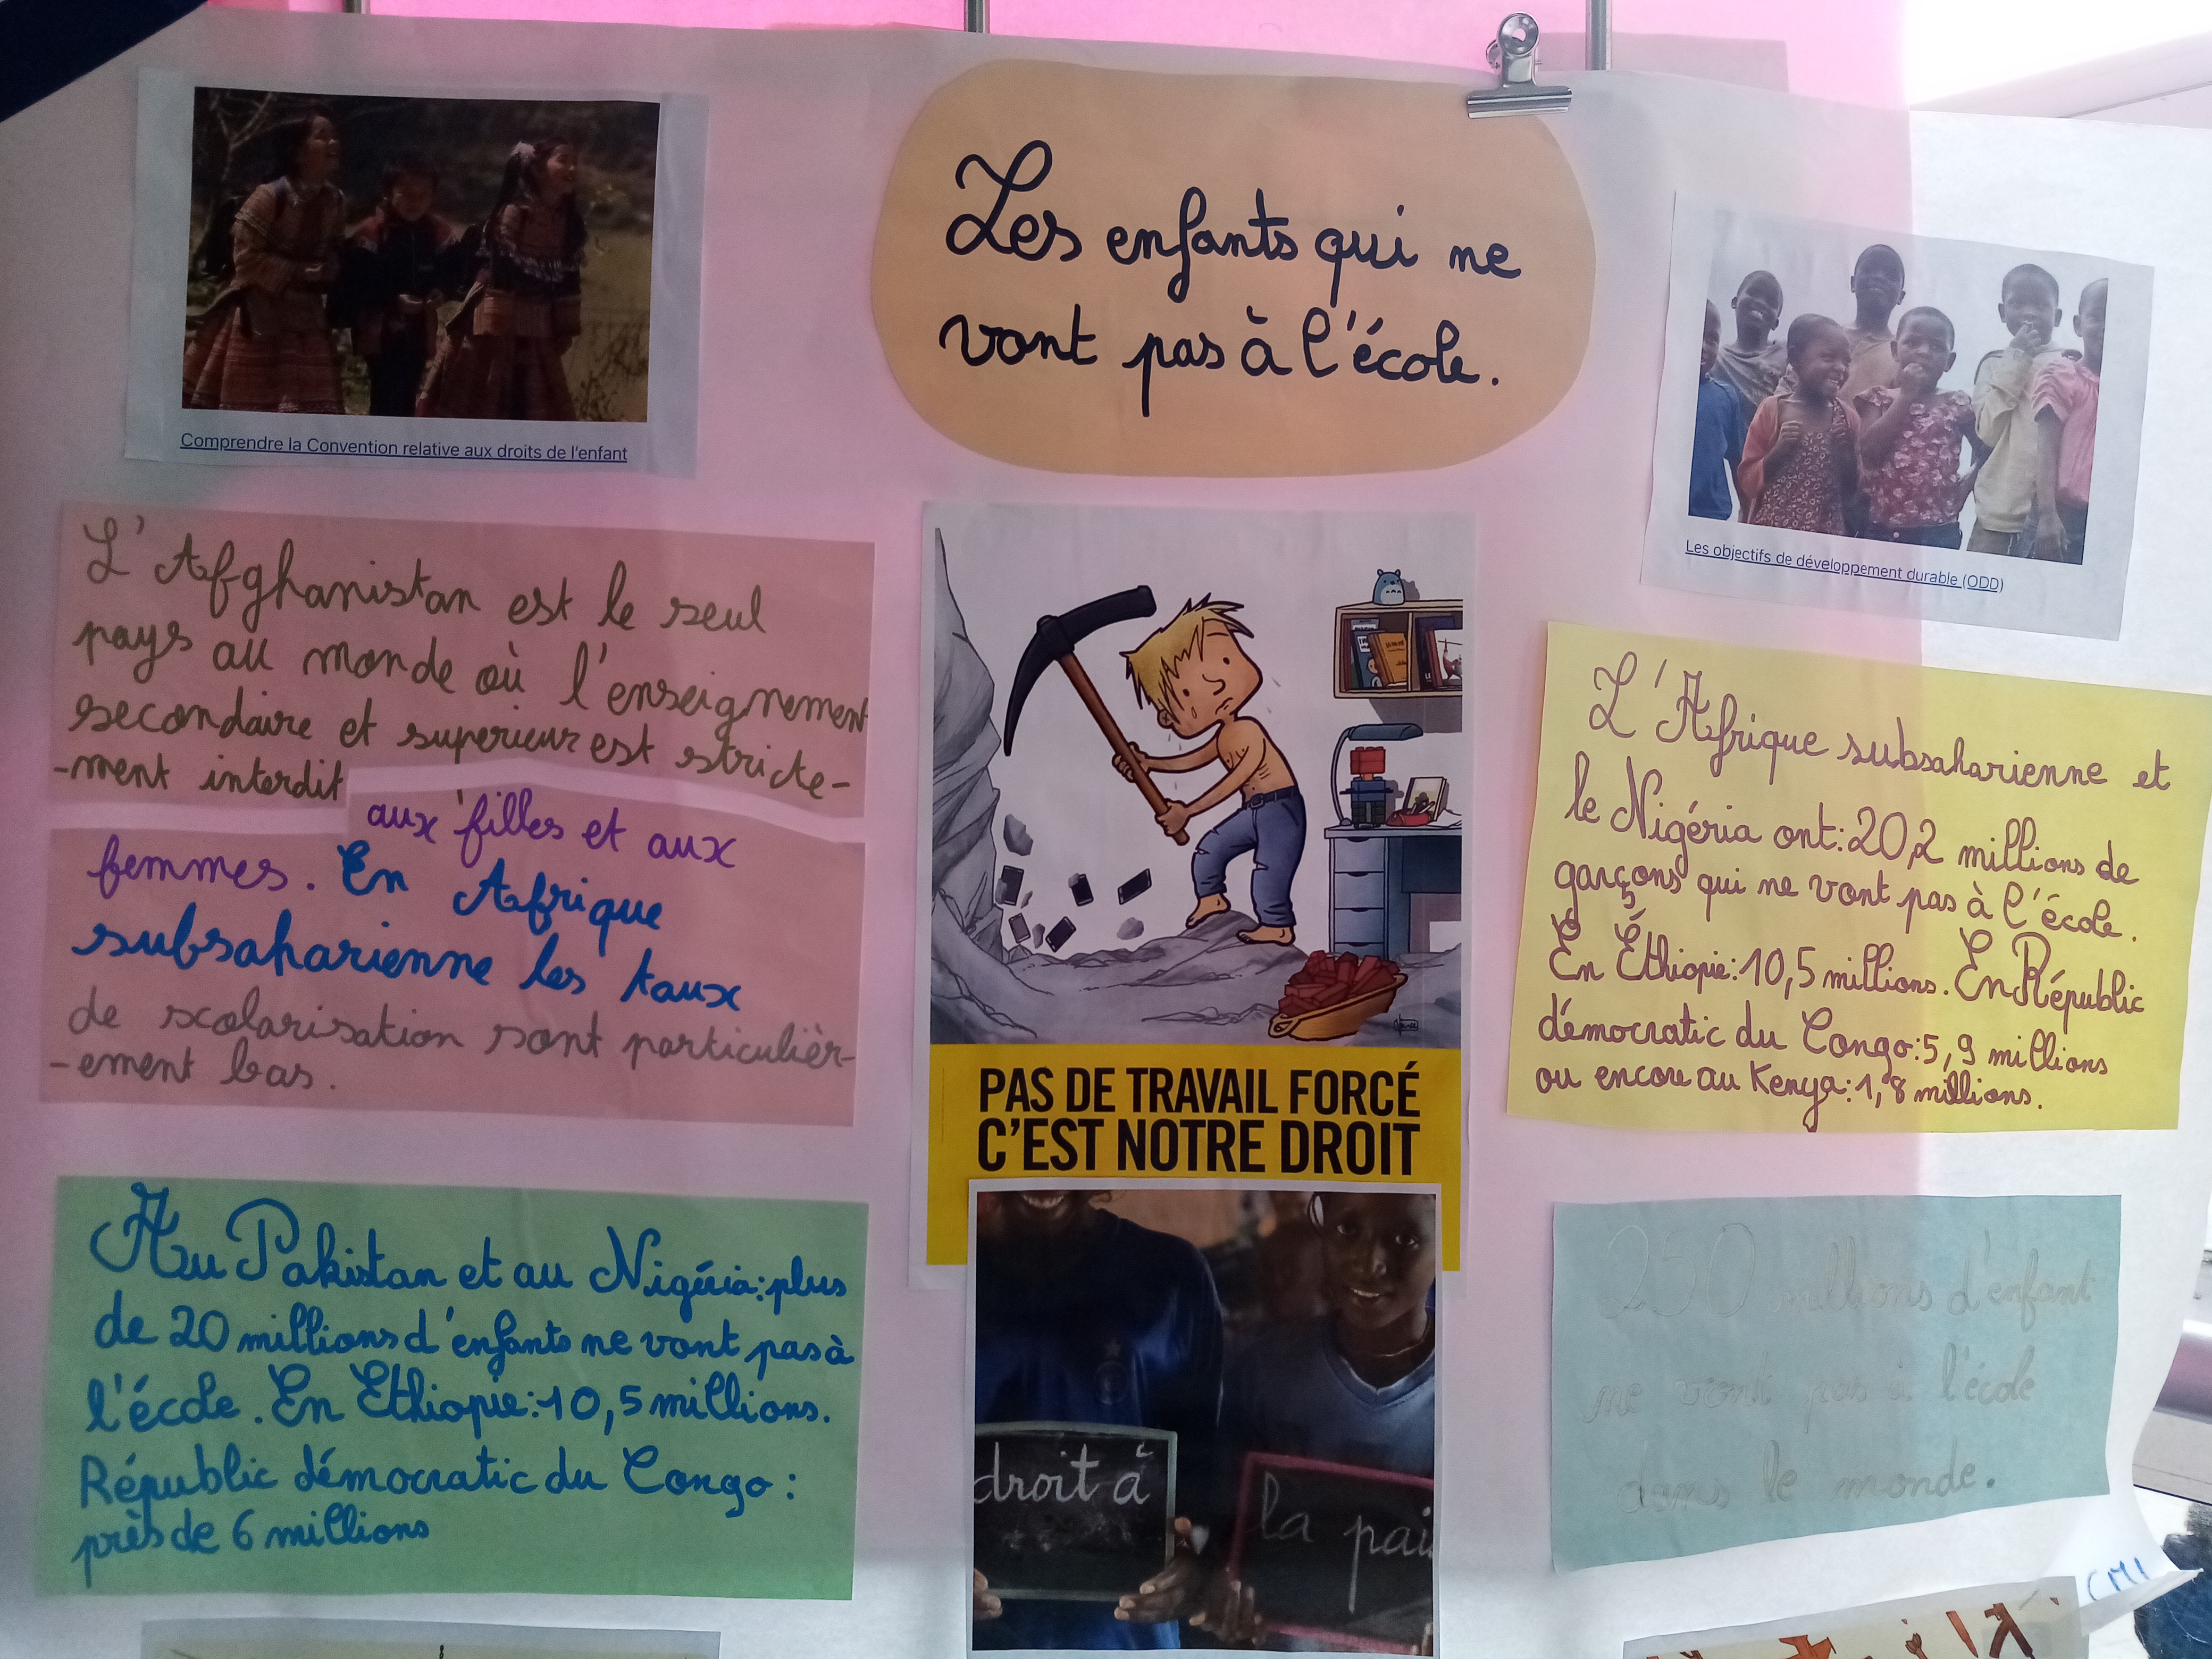 Les enfants qui ne
vont pas à l'école.
Comprendre la Convention relative aux droits de l'enfant
L'Afghanistan est le seul
pays au monde où l'enseignement
secondaire et superieur est stricte-
-ment interdit
aux filles et aux
femmes. En Afrique
subsaharienne les taux
de scolarisation sont particulièr-
-ement bas.
Au Pakistan et au Nigéria: plus
de 20 millions d'enfants ne vont pas à
l'école. En Ethiopie: 10,5 millions.
République démocratic du Congo:
près de 6 millions
PAS DE TRAVAIL FORCÉ
C'EST NOTRE DROIT
droit à
la pai
Les objectifs de développement durable (ODD)
L'Afrique subsaharienne et
le Nigéria ont: 20,2 millions de
garçons qui ne vont pas à l'école.
En Éthiopie: 10,5 millions. En Républic
démocratic du Congo: 5,9 millions
ou encore au Kenya: 1,8 millions.
250 millions d'enfant
ne vont pas à l'école
dans le monde.
CM1